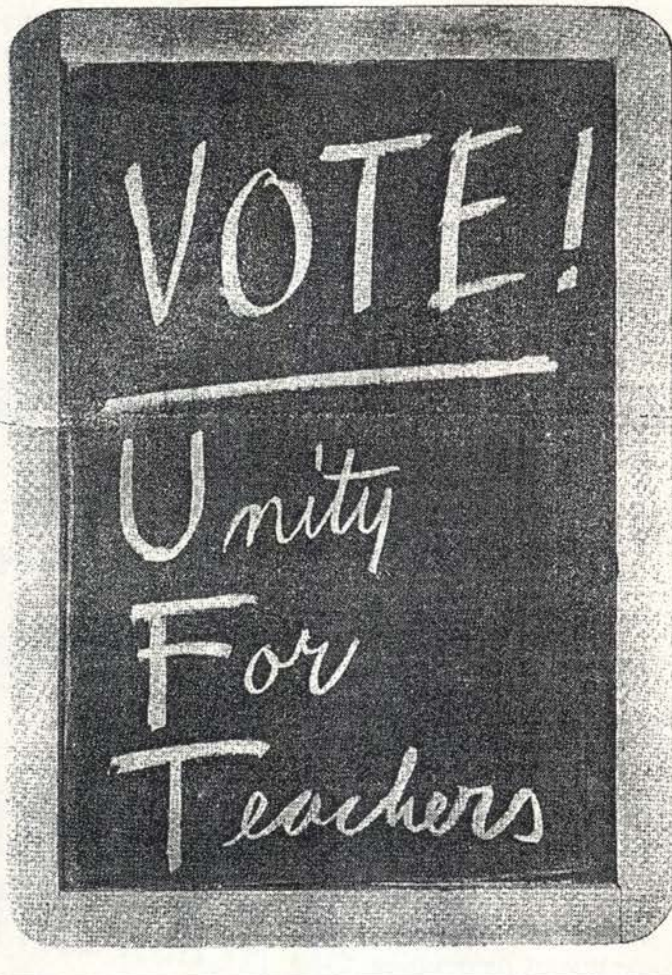 VOTE!
Unity
For
Teachers